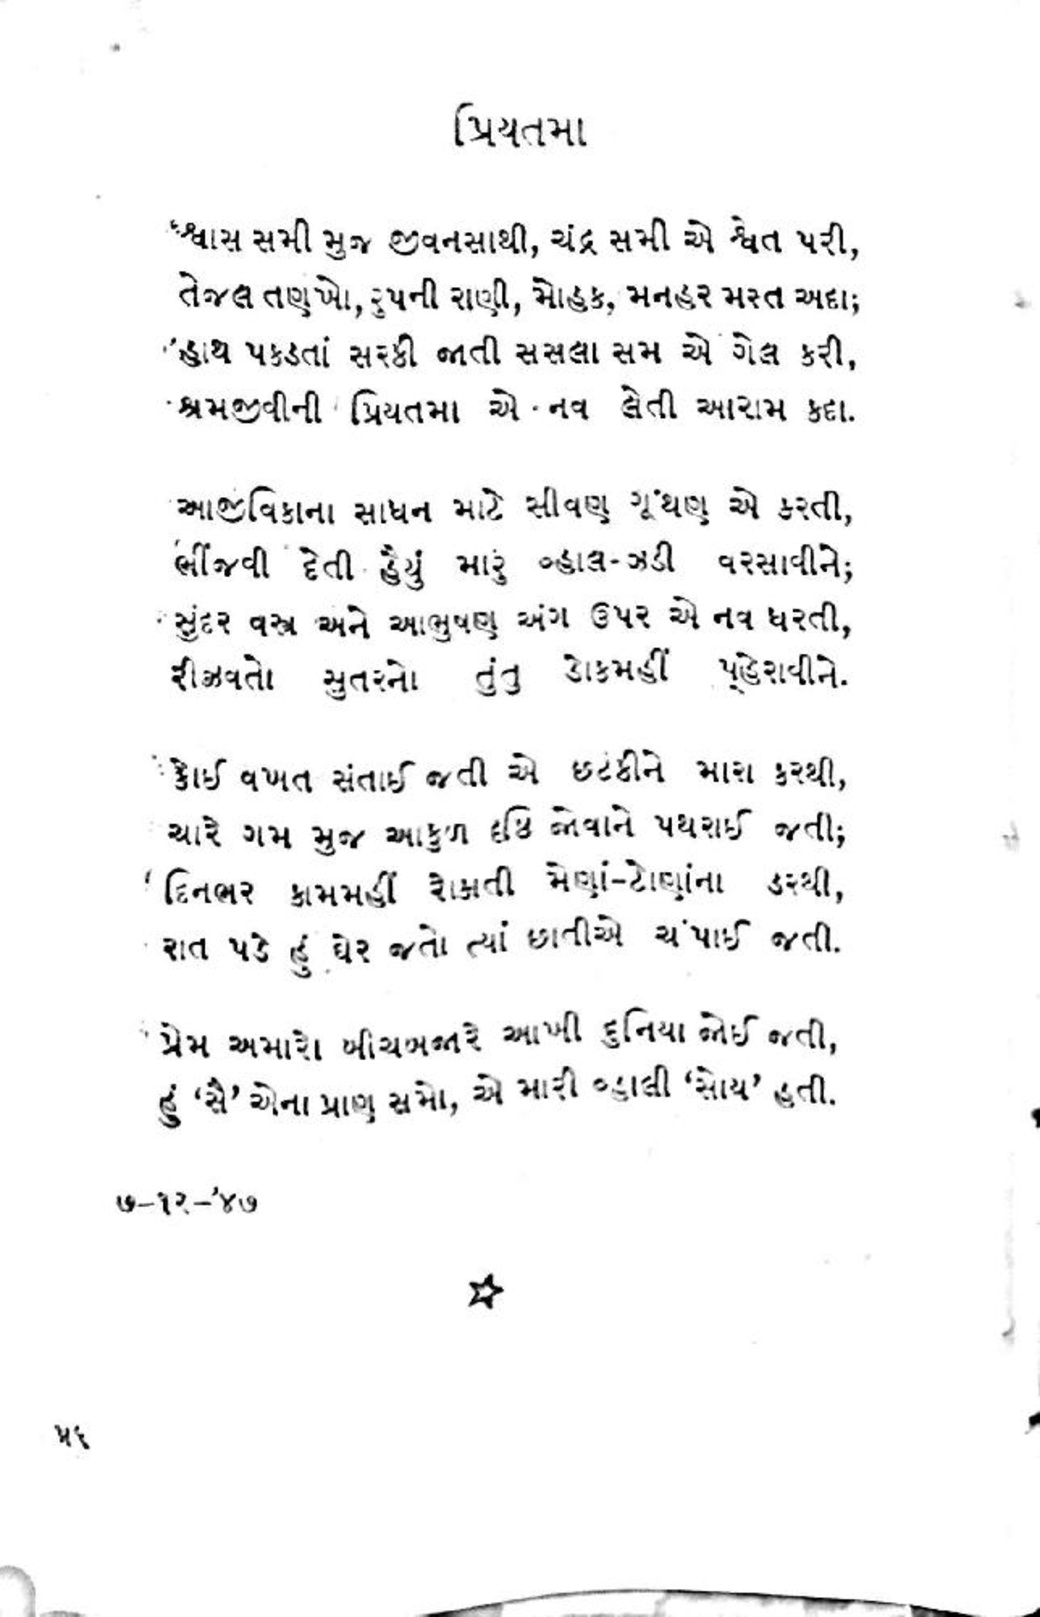 પ્રિયતમા
શ્વાસ સમી મુજ જીવનસાથી, ચંદ્ર સમી એ શ્વેત પરી,
તેજલ તણખો, રુપની રાણી, મોહક, મનહર મસ્ત અદા;
હાથ પકડતાં સરકી જાતી સસલા સમ એ ગેલ કરી,
શ્રમજીવીની પ્રિયતમા એ નવ લેતી આરામ કદા.
આજીવિકાના સાધન માટે સીવણ ગૂંથણ એ કરતી,
ભીંજવી દેતી હૈયું મારું વ્હાલ-ઝડી વરસાવીને;
સુંદર વસ્ત્ર અને આભુષણ અંગ ઉપર એ નવ ધરતી,
રીઝવતો સુતરનો તુંતુ ડોકમહીં પ્હેરાવીને.
કોઈ વખત સંતાઈ જતી એ છટકીને મારા કરથી,
ચારે ગમ મુજ આકુળ દૃષ્ટિ જોવાને પથરાઈ જતી;
દિનભર કામમહીં રોકાતી મેણાં-ટોણાંના ડરથી,
રાત પડે હું ઘેર જતો ત્યાં છાતીએ ચંપાઈ જતી.
પ્રેમ અમારો બીચબજારે આખી દુનિયા જોઈ જતી,
હું ‘સૈ’ એના પ્રાણ સમો, એ મારી વ્હાલી ‘સોય’ હતી.
૭-૧૨-’૪૭
૫૬